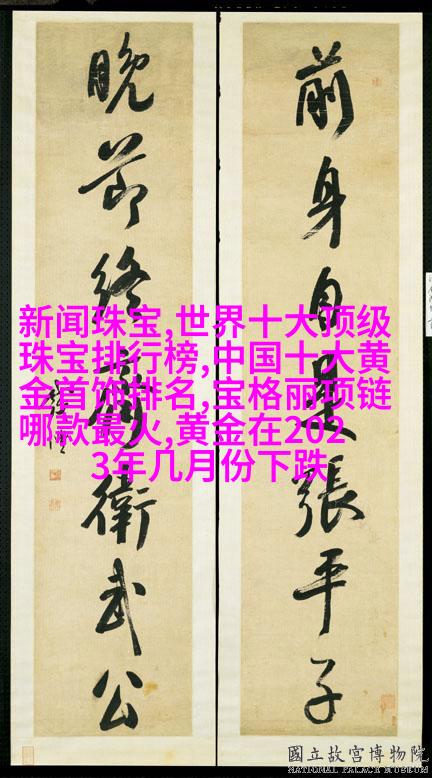 前身自是張平子
晚節終衛武公
新闻珠宝,世界十大顶级
珠宝排行榜,中国十大黄
金首饰排名,宝格丽项链
哪款最火,黄金在202
3年几月份下跌
國立故宮博物院
NATIONAL PALACE MUSEUM